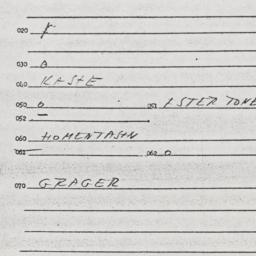 020
030 0
040 KASTE
050 0 051 1 STER TONE
052 —
060 HOMENTASN
061 — 062 0
070 GRAGER